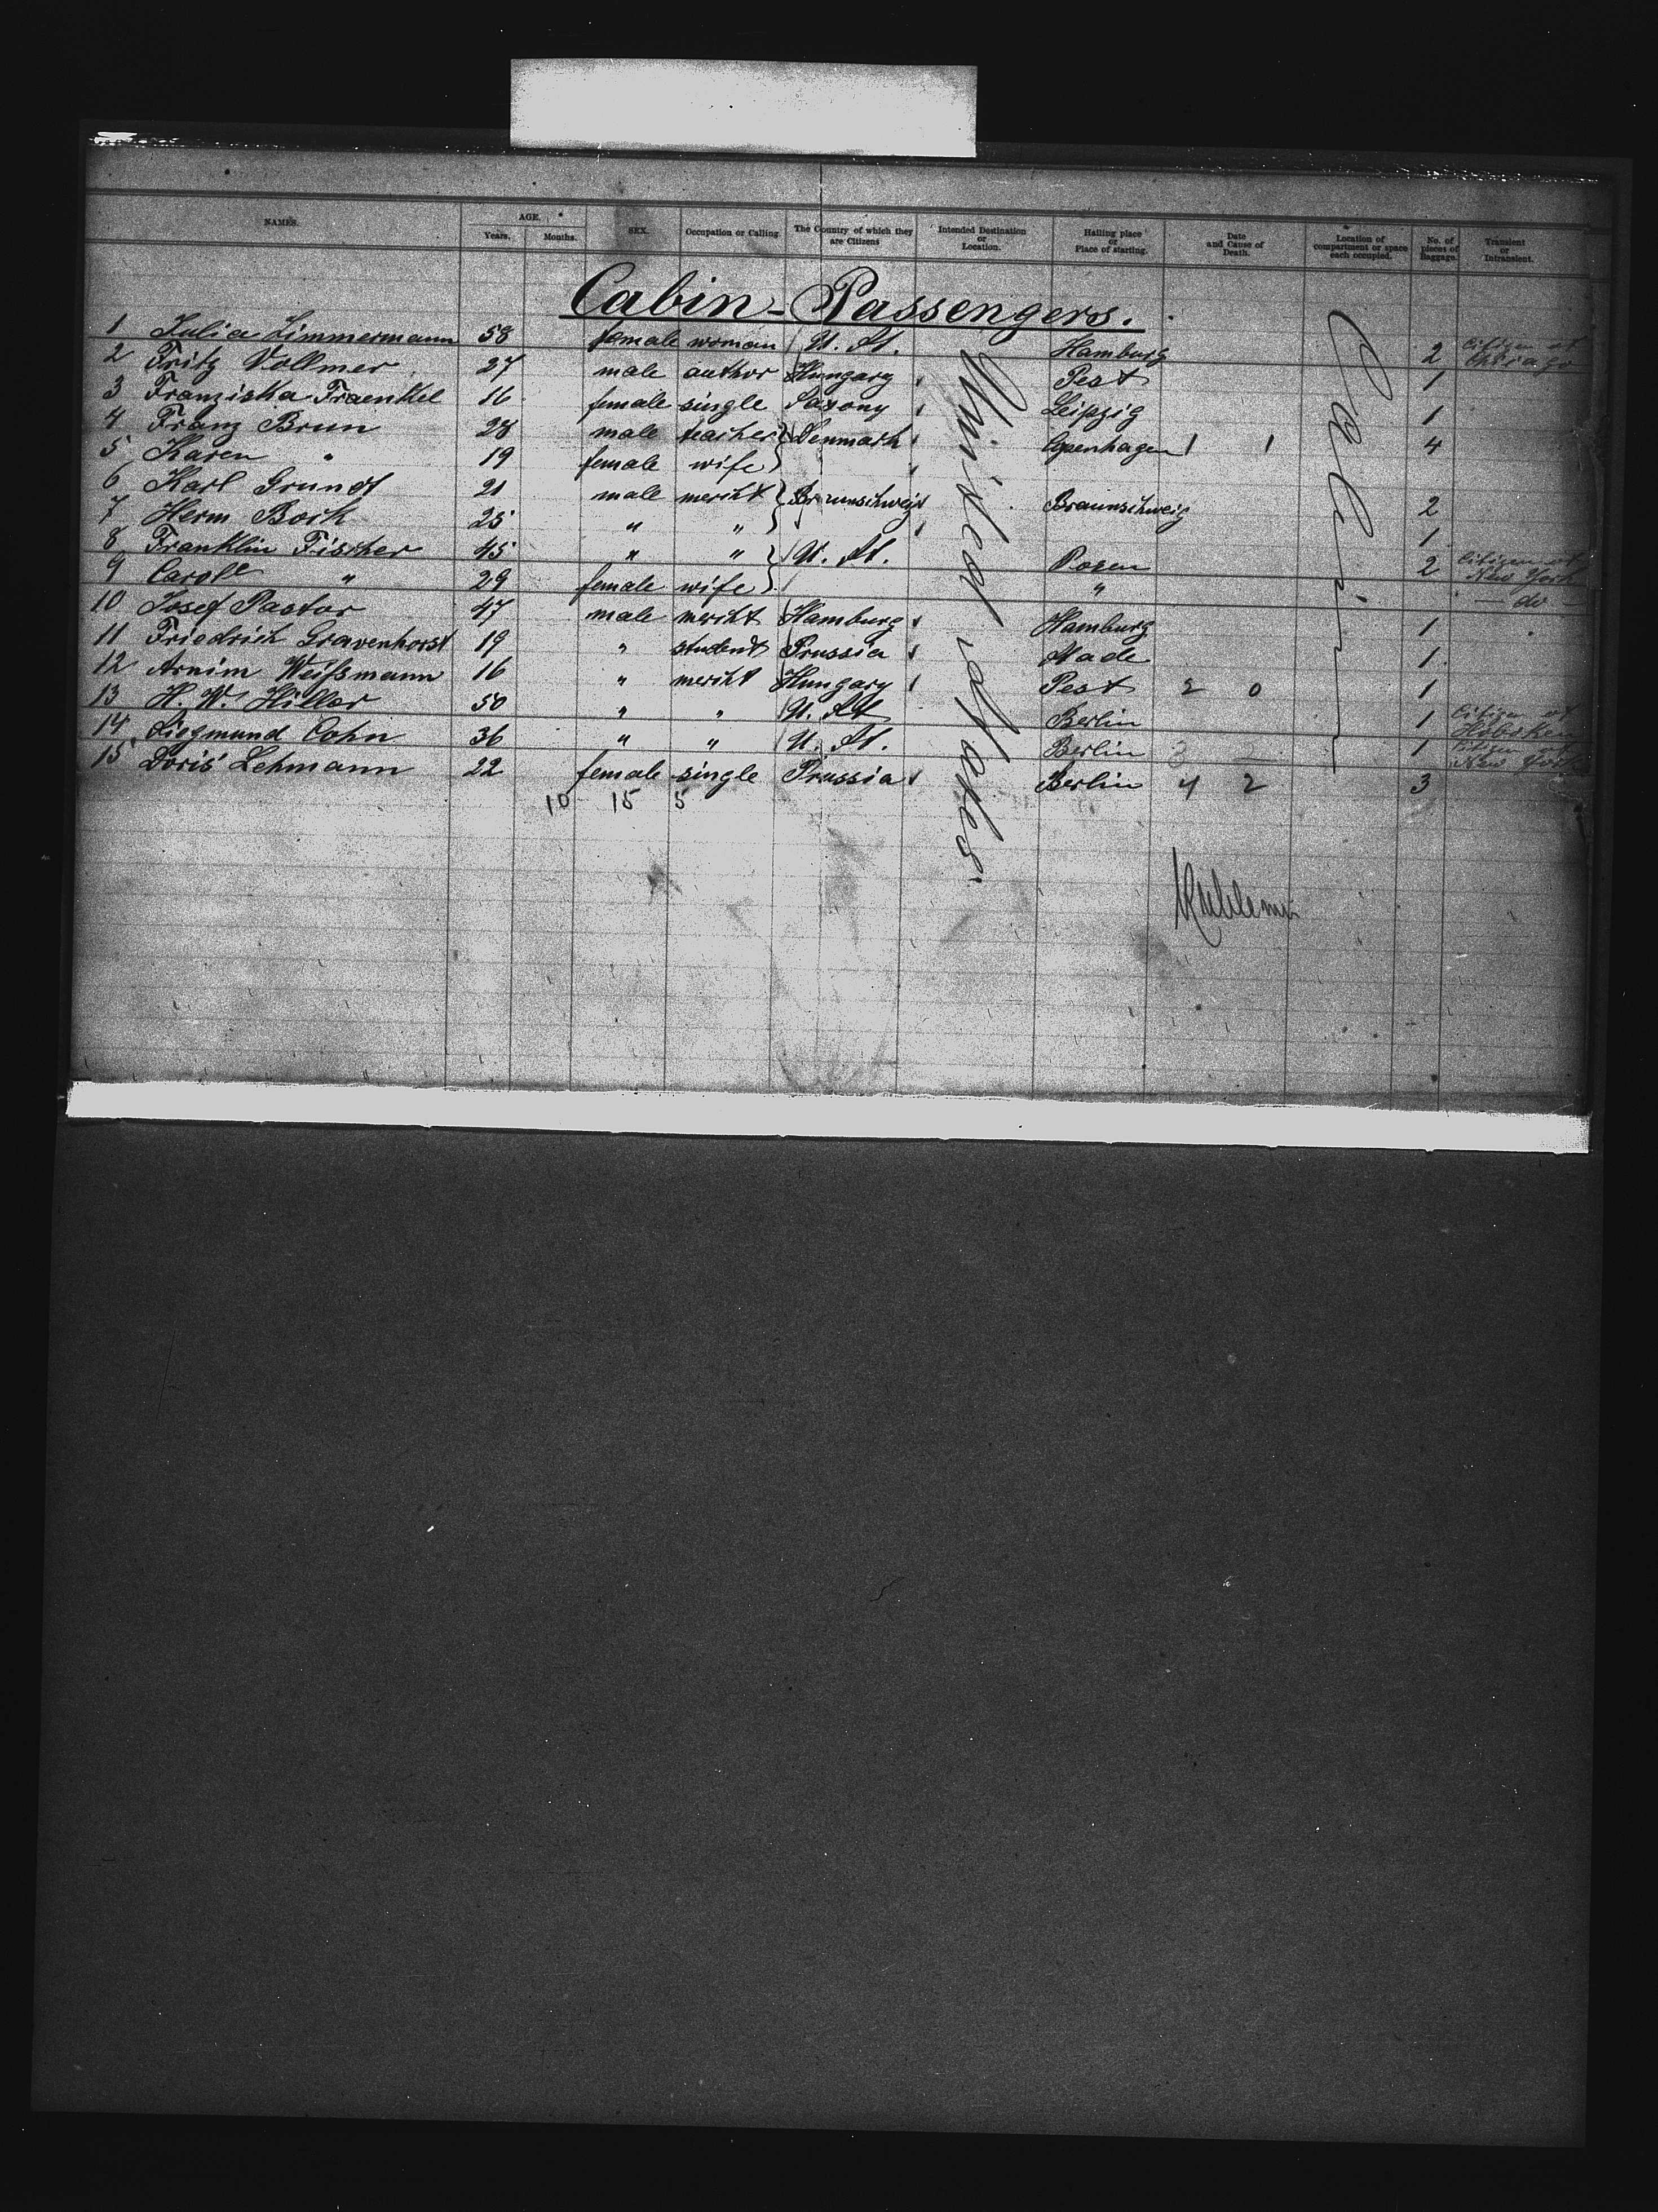 NAMES. AGE. SEX. Occupation or Calling. The Country of which they are Citizens Intended Destination or Location. Hailing place or Place of starting. Date and Cause of Death. Location of compartment or space each occupied. No. of pieces of Baggage. Transient or Intransient.
Years. Months.
Cabin-Passengers.
1 Julia Zimmermann 58 female woman U. St. Hamburg 2 Citizen of Chicago
2 Fritz Vollmer 27 male author Hungary Pest 1
3 Franziska Fraenkel 16 female single Saxony Leipzig 1
4 Franz Brun 28 male teacher Denmark Copenhagen 1 1 4
5 Karen " 19 female wife
6 Karl Grundt 21 male mercht Braunschweig Braunschweig 2
7 Herm Bock 25 " " 1
8 Franklin Fischer 45 " " U. St. Posen 2 Citizen of New York
9 Carole " 29 female wife " do
10 Josef Pastor 47 male mercht Hamburg Hamburg 1
11 Friedrich Gravenhorst 19 " student Prussia Stade 1
12 Arnim Weißmann 16 " mercht Hungary Pest 2 0 1
13 H. W. Hiller 50 " " U. St Berlin 1 Citizen of Hoboken
14 Siegmund Cohn 36 " " U. St. Berlin 1 Citizen of New York
15 Doris Lehmann 22 female single Prussia Berlin 4 2 3
10 15 5
United States.
Cabin